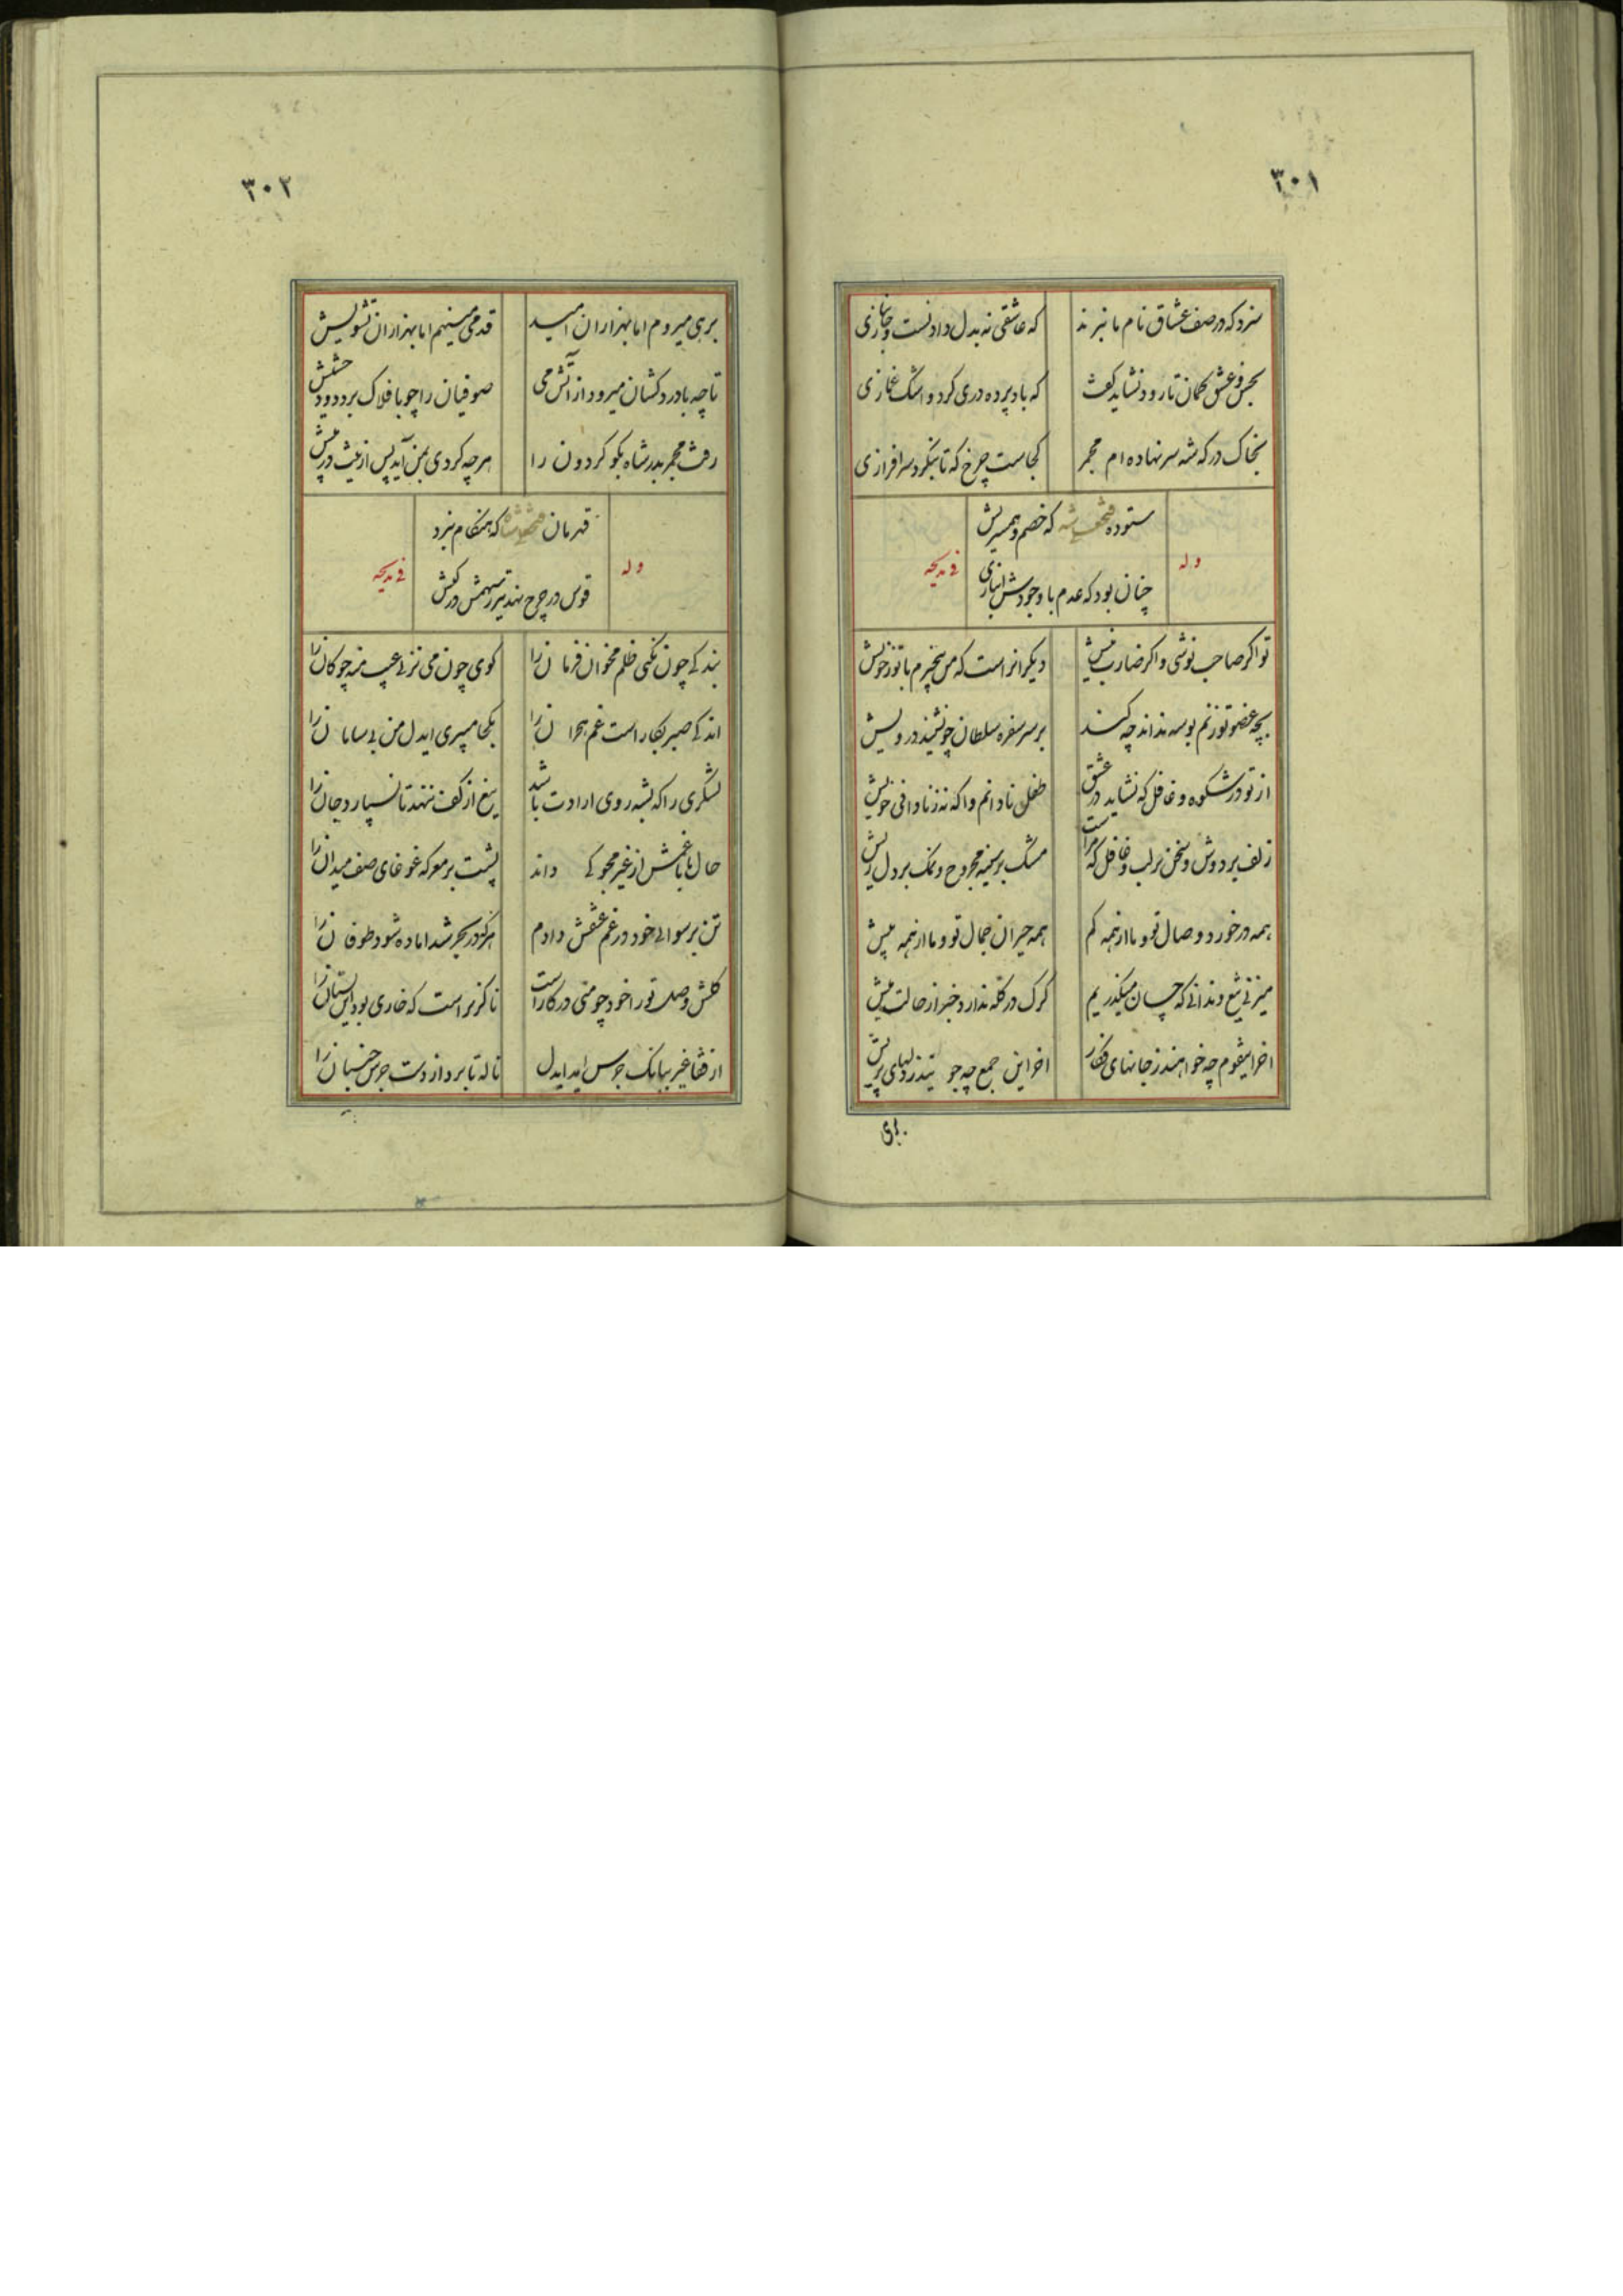 ٣٠١
سزد که در صف عشاق نام ما نبرند
که عاشقی نه بدل دادنست و جانبازی
بجز عشق کمان تا رود نشاید گفت
که باد پرده دری کرد و اشک غمازی
بخاک درگه شه سر نهاده ام مجمر
کجاست چرخ که تا بنگرد سرافرازی
وله
ستوده فتحعلی شه که خصم و همسریش
چنان بود که عدم با وجودش انبازی
فی مدیحه
تو اگر صاحب نوشی و اگر ضارب نیش
دیگرانراست که من بیخبرم با تو ز خویش
بچه عضو تو زنم بوسه نداند چه کند
بر سر سفره سلطان چو نشیند درویش
از تو در شکوه و غافل که نشاید در عشق
طفل نادانم و آگه نه ز نادانی خویش
زلف بر دوش و سخن بر لب و غافل که مراست
مشک بر سینه مجروح و نمک بر دل ریش
همه در خورد وصال تو و ما از همه کم
همه حیران جمال تو و ما از همه بیش
میزنی تیغ و ندانی که چسان میگذریم
گرگ در گله ندارد خبر از حالت میش
اخر اینقوم چه خواهند ز جانهای فکار
اخر این جمع چه جویند ز دلهای پریش
برهی
٣٠٢
برهی میروم اما بهزاران امید
قدمی مینهم اما بهزاران تشویش
تا چه با دردکشان میرود از آتش می
صوفیان را چو بافلاک برد دود حشیش
رفت مجمر بدر شاه بگو گردون را
هر چه کردی بمن آید پس ازینت در پیش
وله
قهرمان فتحعلیشاه که هنگام نبرد
قوس در چرخ نهد تیر ز سهمش در کیش
فی مدیحه
بندگی چون نکنی ظلم مخوان فرمان را
گوی چون می نزنی عیب منه چوگان را
اندکی صبر بکار است غم هجران را
بکجا میبری ایدل من بی سامان را
لشگری را که بشه روی ارادت باشد
تیغ از کف ننهد تا نسپارد جان را
حال ما با غمش از غیر مجو کی داند
پشت بر معرکه غوغای صف میدان را
تن برسوائی خود در غم عشقش دادم
هر که در بحر شد اماده شود طوفان را
گلشن وصل تو را خود چو منی در کار است
ناگزیر است که خاری بود این بستان را
از قفا خیر ببانگ جرس اید ایدل
ناله تا برد از دست جرس جنبان را